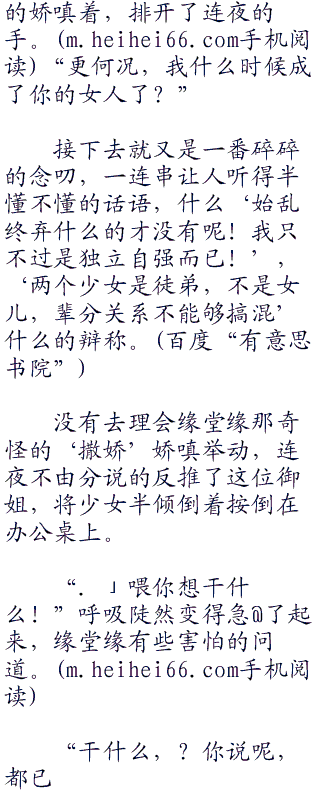 的娇嗔着，排开了连夜的
手。(m.heihei66.com手机阅
读)“更何况，我什么时候成
了你的女人了？”
接下去就又是一番碎碎
的念叨，一连串让人听得半
懂不懂的话语，什么‘始乱
终弃什么的才没有呢！我只
不过是独立自强而已！’，
‘两个少女是徒弟，不是女
儿，辈分关系不能够搞混’
什么的辩称。(百度“有意思
书院”)
没有去理会缘堂缘那奇
怪的‘撒娇’娇嗔举动，连
夜不由分说的反推了这位御
姐，将少女半倾倒着按倒在
办公桌上。
“．」喂你想干什
么！”呼吸陡然变得急@了起
来，缘堂缘有些害怕的问
道。(m.heihei66.com手机阅
读)
“干什么，？你说呢，
都已